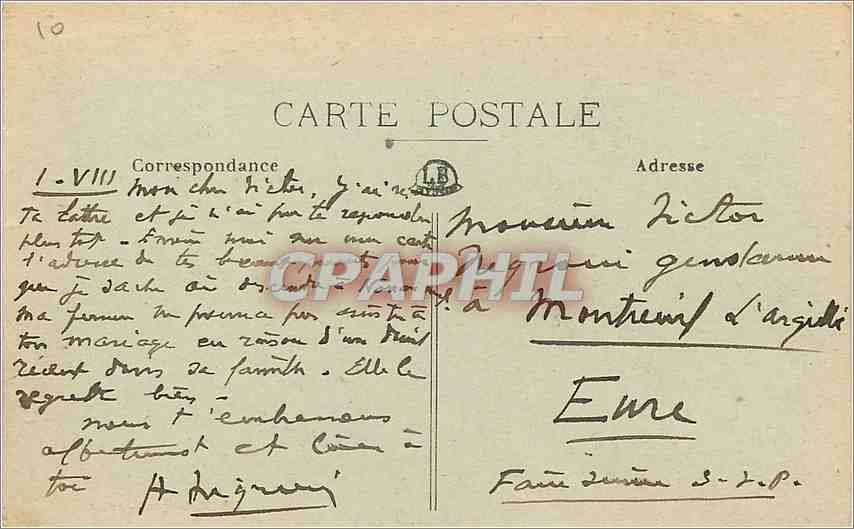 10
CARTE POSTALE
Correspondance
LB
Adresse
1-VIII Mon cher Victor, j'ai reçu
ta lettre et je n'ai pu te répondre
plus tôt - Envoie moi sur une carte
l'adresse de tes beaux parents pour
que je sache où descendre à
ma femme ne pourra pas assister à
ton mariage en raison d'un deuil
récent dans sa famille. Elle le
regrette bien.
nous t'embrassons
affectueust et bien à
toi
Monsieur Victor
gendarme
à Montreuil L'argillé
Eure
Faire suivre S.V.P.
CPAPHIL